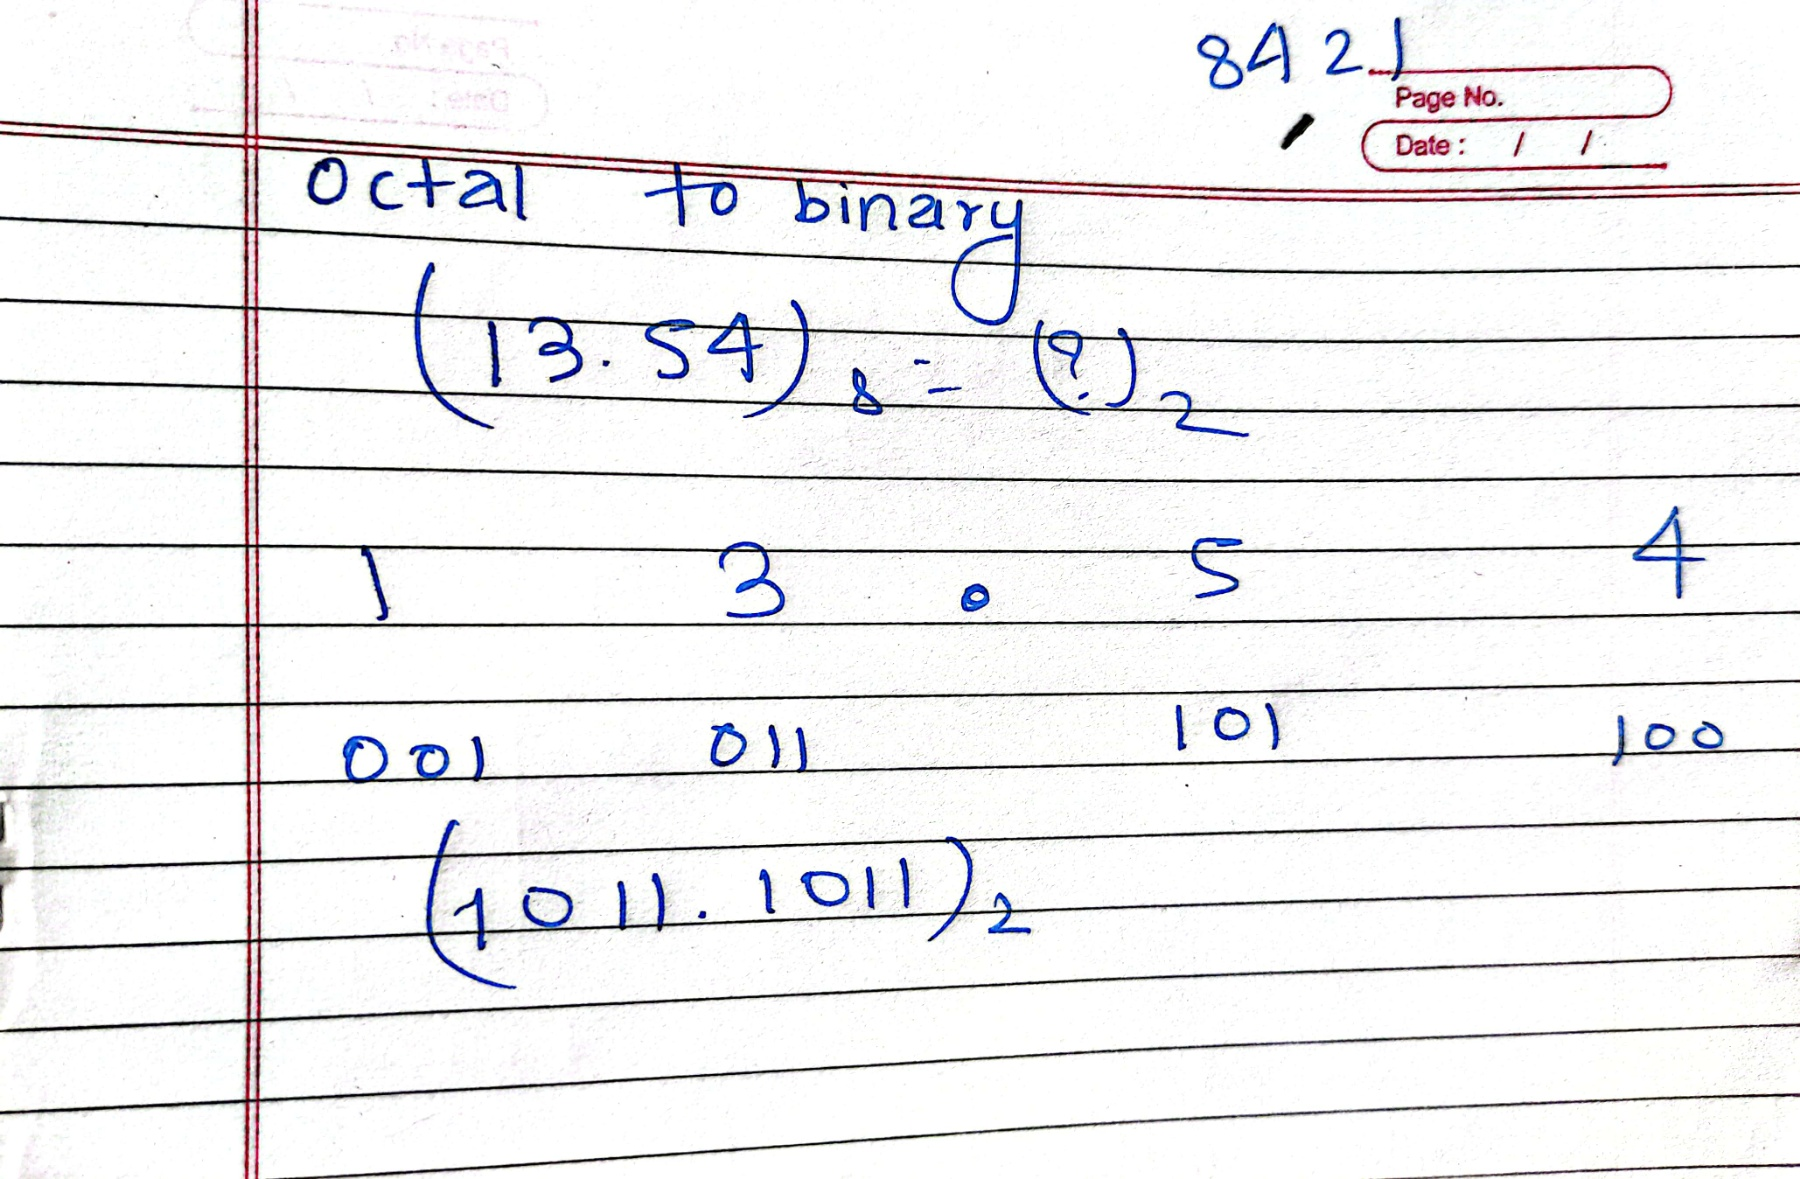 8421
Page No.
Date : / /
Octal to binary
(13.54)8 = (?)2
1 3 . 5 4
001 011 101 100
(1011.1011)2